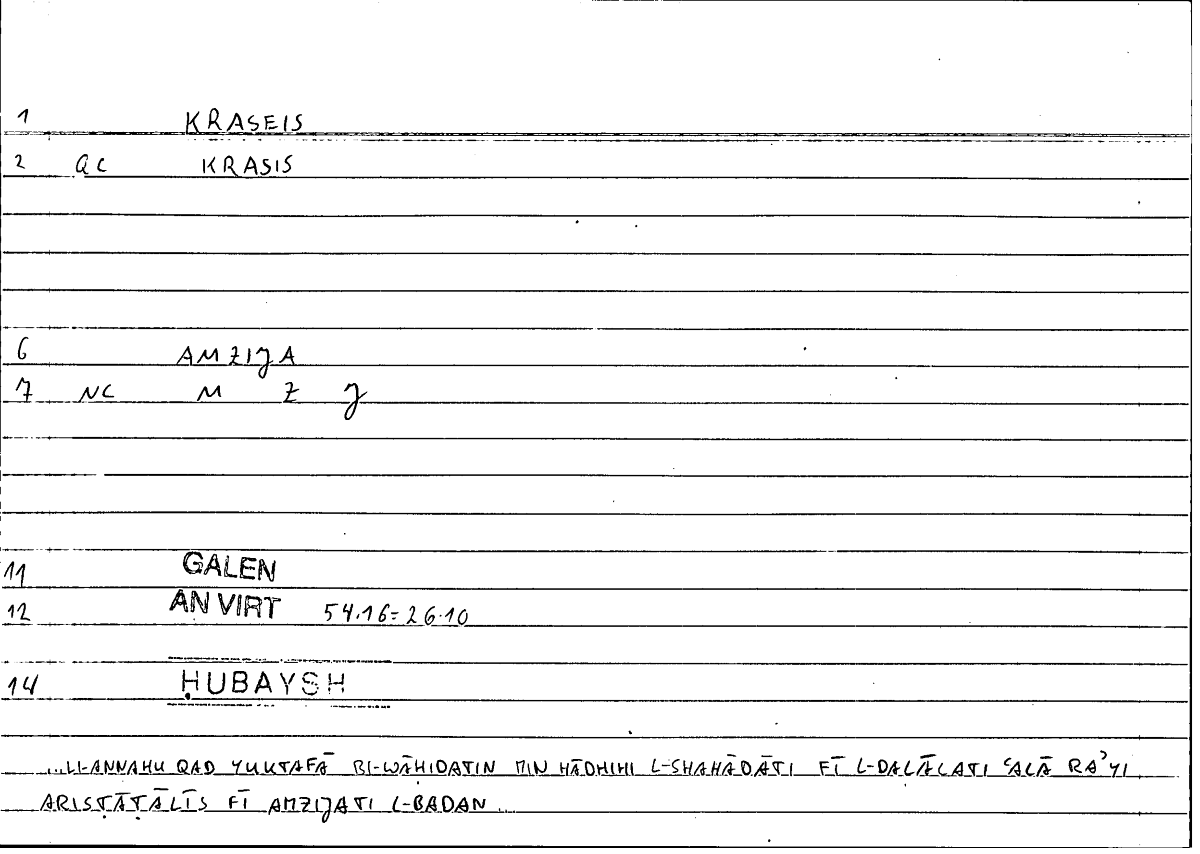 1 KRASEIS
2 QC KRASIS
6 AMZIJA
7 NC M Z J
11 GALEN
12 AN VIRT 54.16=26.10
14 ḤUBAYSH
...LI-ANNAHU QAD YUKTAFĀ BI-WĀḤIDATIN MIN HĀDHIHI L-SHAHĀDĀTI FĪ L-DALĀLATI ʿALĀ RAʾYI
ARISṬĀṬĀLĪS FĪ AMZIJATI L-BADAN...